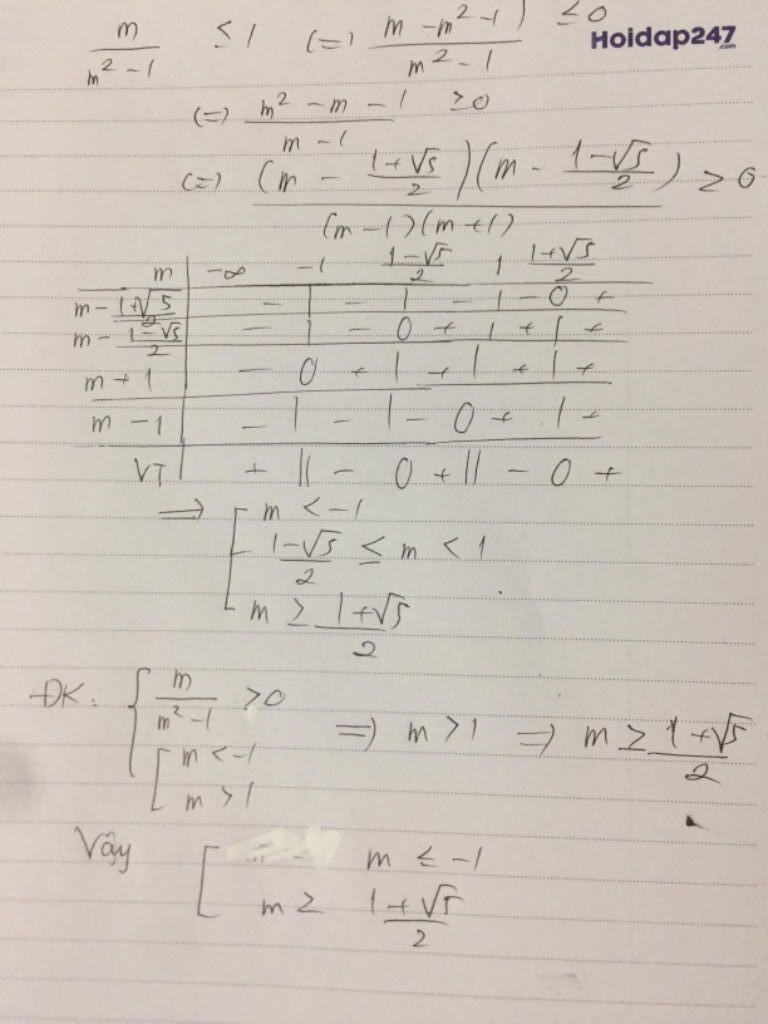 m/(m² - 1) ≤ 1 (=) (m - m² - 1)/(m² - 1) ≤ 0
Hoidap247.com
(=) (m² - m - 1)/(m - 1) ≥ 0
(=) (m - (1+√5)/2)(m - (1-√5)/2)/((m-1)(m+1)) ≥ 0
m | -∞ -1 (1-√5)/2 1 (1+√5)/2
m - (1+√5)/2 | - | - | - | - 0 +
m - (1-√5)/2 | - | - 0 + | + | +
m + 1 | - 0 + | + | + | +
m - 1 | - | - | - 0 + | +
VT | + || - 0 + || - 0 +
=> [ m < -1
(1-√5)/2 ≤ m < 1
m ≥ (1+√5)/2
ĐK: { m/(m² - 1) > 0
[ m < -1
m > 1
=> m > 1 => m ≥ (1+√5)/2
Vậy [ m ≤ -1
m ≥ (1+√5)/2